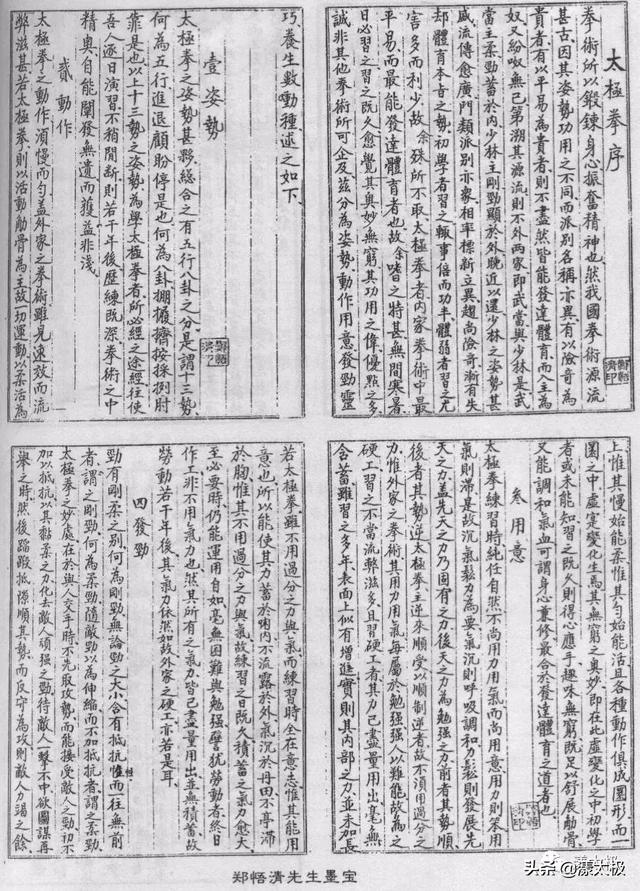 太極拳序
拳術所以鍛鍊身心振奮精神也然我國拳術源流
甚古因其姿勢功用之不同而派別各稱亦異有以險奇為
貴者有以平易為貴者則不盡然皆能發達體育而入主為
奴又紛呶無已第溯其源流則不外兩家即武當與少林是武
當主柔勁蓄於內少林主剛勁顯於外輓近以還少林之姿勢甚
威流傳愈廣門類派別亦衆相率標新立異趨尚險奇漸有失
却體育本旨之勢初學者習之輒事倍而功半體弱者習之尤
害多而利少故余殊所不取太極拳者內家拳術中最
平易而最能發達體育者也故余嗜之特甚無間寒暑
日必習之習之既久愈覺其奧妙無窮其功用之偉優點之多
誠非其他拳術所可企及茲分為姿勢動作用意發勁靈
巧養生數種述之如下
壹姿勢
太極拳之姿勢甚夥綜合之有五行八卦之分是謂十三勢
何為五行進退顧盼停是也何為八卦掤攦擠按採挒肘
靠是也以上十三勢之姿勢為學太極拳者所必經之途經往使
吾人逐日演習不稍間斷則若干年後歷練既深拳術之中
精奧自能闡發無遺而獲益非淺
貳動作
太極拳之動作須慢而勻蓋外家之拳術雖見速效而流
弊滋甚若太極拳則以活動筋骨為主故一切運動以柔活為
上惟其慢始能柔惟其勻始能活且各種動作俱成圓形而一
圜之中虛實變化生焉其無窮之奧妙即在此虛變化之中初學
者或未能知習之既久則得心應手趣味無窮既足以舒展筋骨
又能調和氣血可謂身心兼修最合於發達體育之道者也
叁用意
太極拳練習時純任自然不尚用力用氣而尚用意用力則笨用
氣則滯是故沉氣鬆力為要氣沉則呼吸調和力鬆則發展先
天之力蓋先天之力乃固有之力後天之力為勉强之力前者其勢順
後者其勢逆太極拳主逆來順受以順制逆者故不須用過分之
力惟外家之拳術其用力用氣每屬於勉强强人以難能故為之
硬工習之不當流弊滋多且習硬工者其力已盡量用出毫無
含蓄雖習之多年表面上似有增進實則其內部之力並未加長
若太極拳雖不用過分之力與氣而練習時全在意志惟其能用
意也所以能使其力蓄於內不流露於外氣沉於丹田不亭滯
於胸惟其不用過分之力與氣故練習之日既久積蓄之氣力愈大
至必要時仍能運用自如毫無困難與勉强譬犹勞動者終日
作工非不用氣力也然其所有之氣力皆已盡量用出並無積蓄故
勞動若干年後其氣力依然如故外家之硬工亦若是耳
四發勁
勁有剛柔之別何為剛勁無論勁之大小含有抵抗性而往無前
者謂之剛勁何為柔勁隨敵勁以為伸縮而不加抵抗者謂之柔勁
太極拳之妙處在於與人交手時不先取攻勢而能接受敵人之勁初不
加以抵抗以其黏柔之力化去敵人頑强之勁待敵人一擊不中欲圖謀再
舉之時然後蹈瑕抵隙順其勢而反守為攻則敵人力竭之餘
郑悟清先生墨宝
头条@潆太极